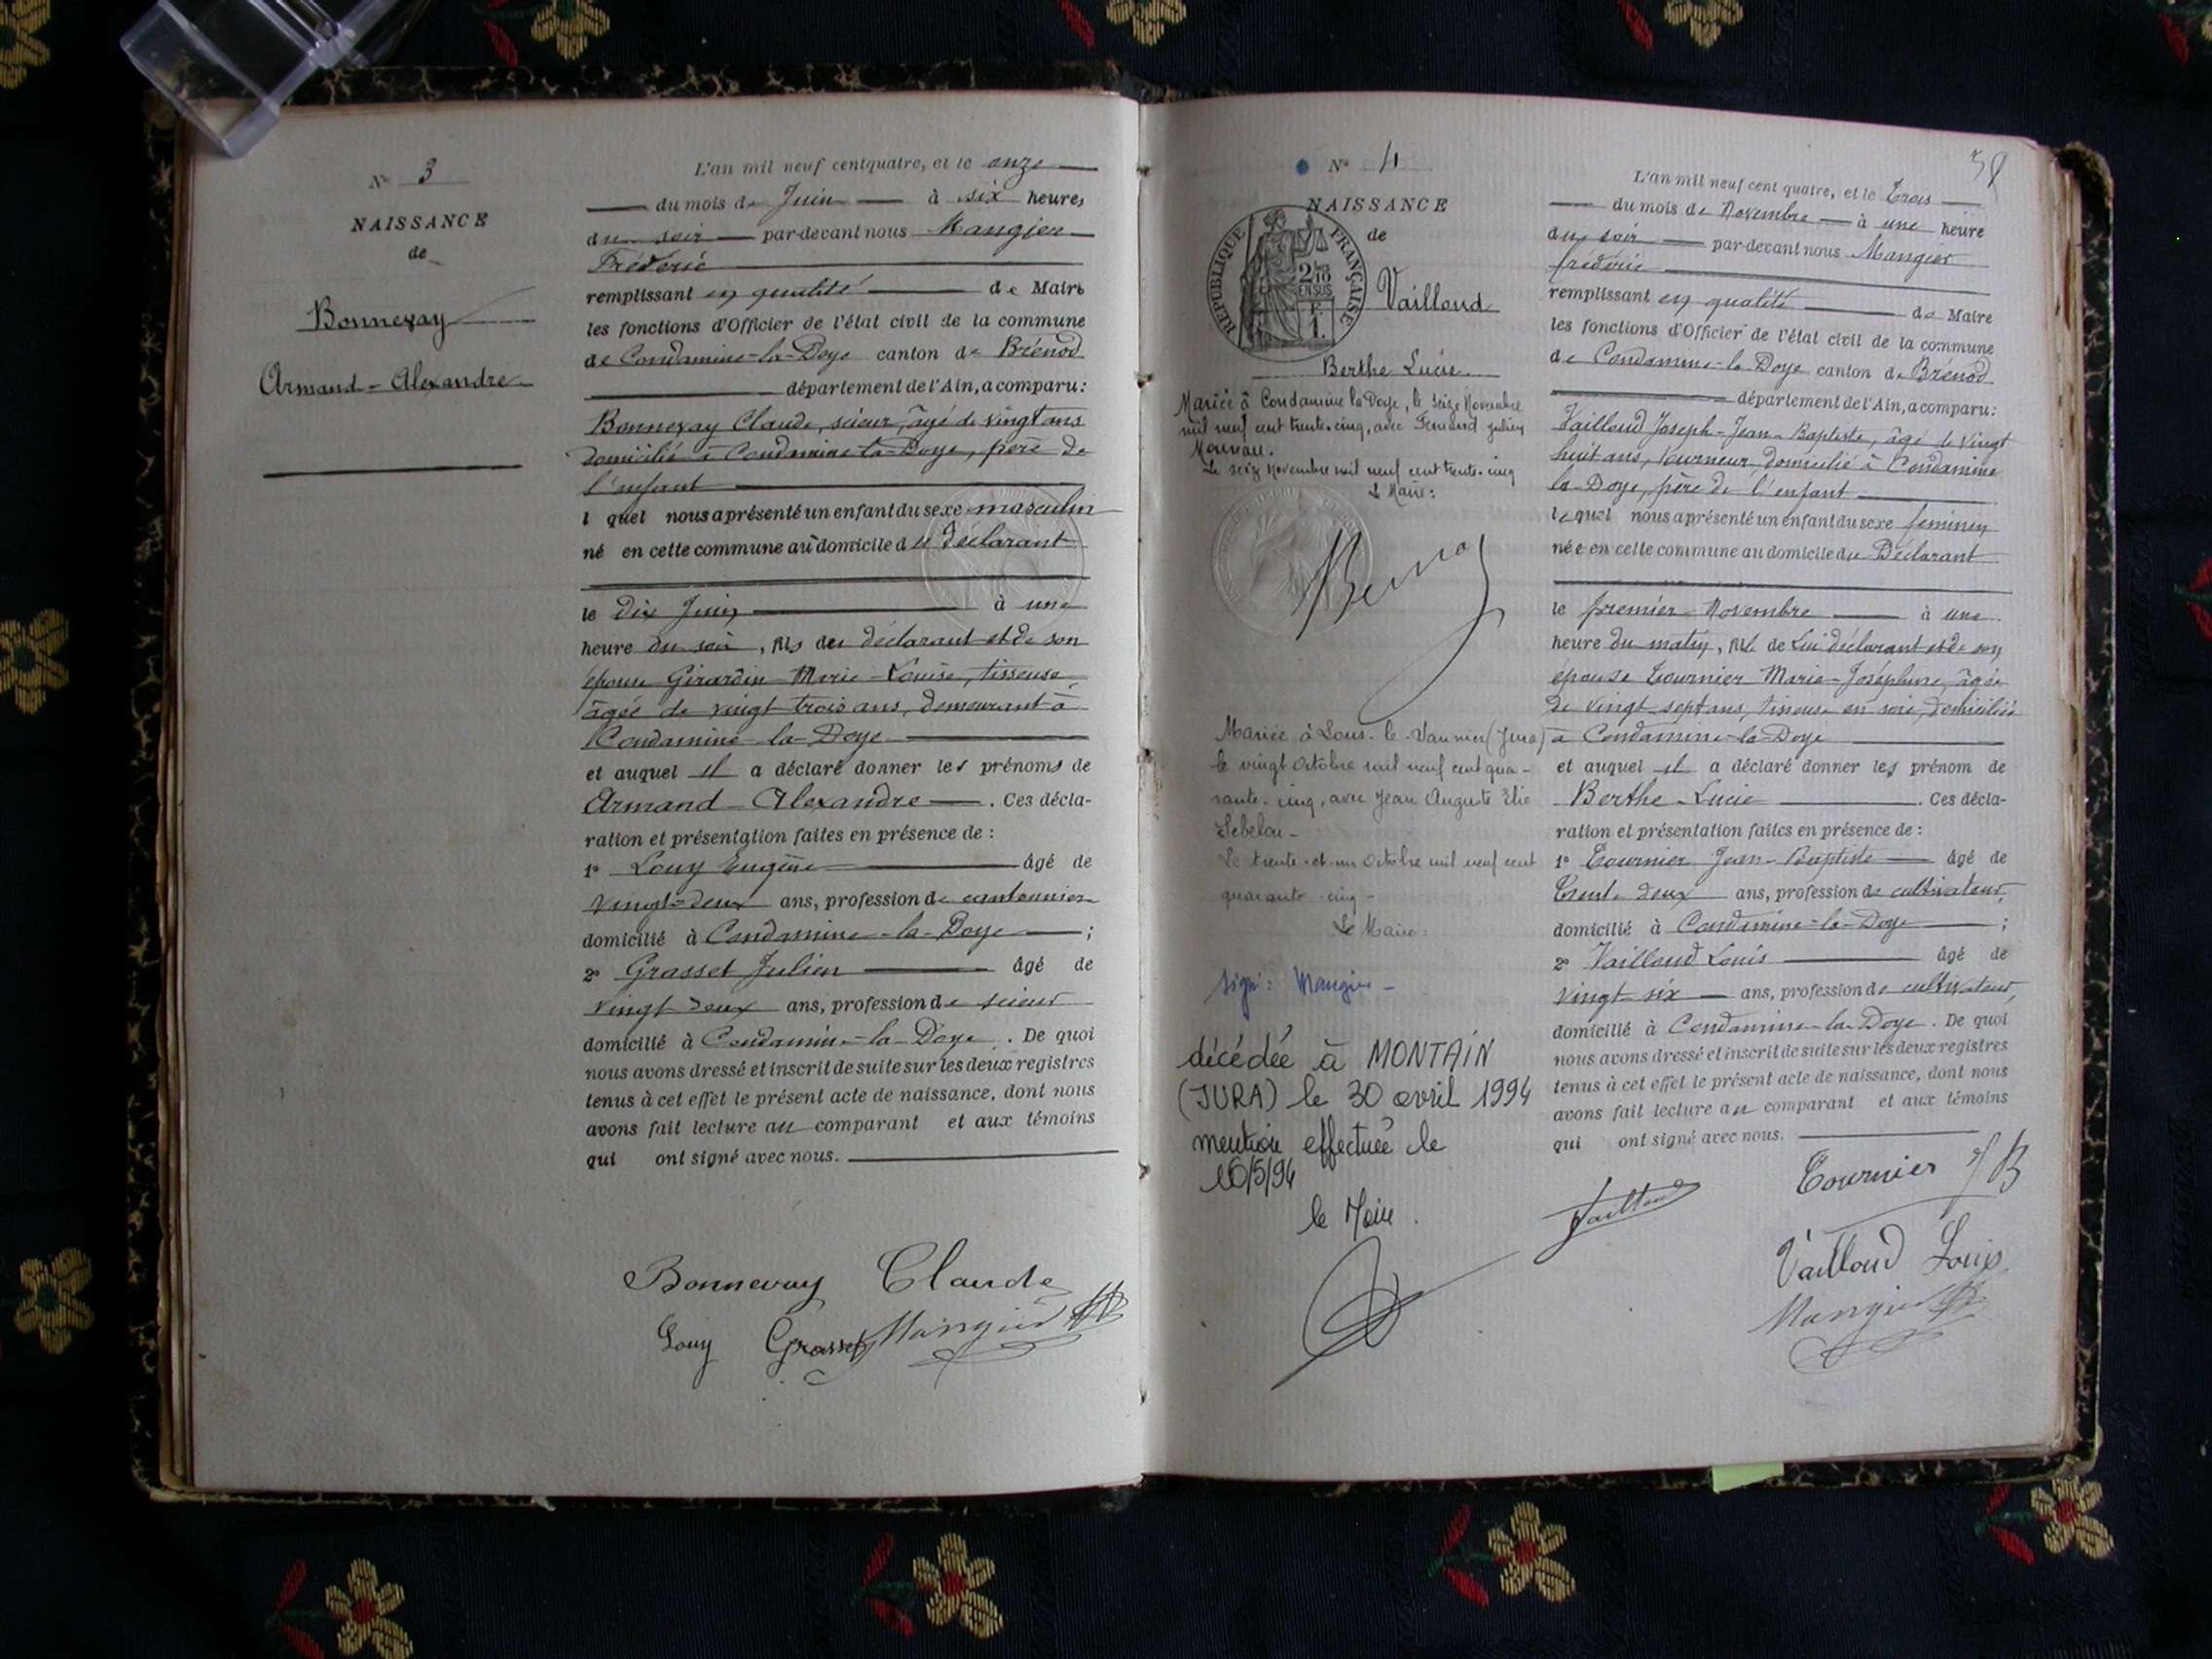 N° 3
NAISSANCE
de
Bonnevay
Armand - Alexandre
L'an mil neuf cent quatre, et le onze
du mois de Juin à six heures
du soir par-devant nous Mangier
Frédéric
remplissant en qualité de Maire
les fonctions d'Officier de l'état civil de la commune
de Condamine-la-Doye canton de Brénod
département de l'Ain, a comparu:
Bonnevay Claude, scieur, âgé de vingt ans
domicilié à Condamine-la-Doye, père de
l'enfant
l quel nous a présenté un enfant du sexe masculin
né en cette commune au domicile du déclarant
le dix Juin à une
heure du soir, fils du déclarant et de son
épouse Girardin Marie-Louise, tisseuse
âgée de vingt trois ans, demeurant à
Condamine-la-Doye
et auquel il a déclaré donner les prénoms de
Armand-Alexandre. Ces décla-
ration et présentation faites en présence de :
1° Louy Eugène âgé de
vingt-deux ans, profession de cantonnier
domicilié à Condamine-la-Doye ;
2° Grasset Julien âgé de
vingt deux ans, profession de scieur
domicilié à Condamine-la-Doye. De quoi
nous avons dressé et inscrit de suite sur les deux registres
tenus à cet effet le présent acte de naissance, dont nous
avons fait lecture au comparant et aux témoins
qui ont signé avec nous.
Bonnevay Claude
Louy Grasset Mangier
38
N° 4
NAISSANCE
de
REPUBLIQUE FRANÇAISE
2/10
EN SUS
F.
1.
Vailloud
Berthe Lucie.
Mariée à Condamine la Doye, le seize Novembre
mil neuf cent trente-cinq, avec Fernand Julien
Le seize Novembre mil neuf cent trente-cinq
Le Maire:
Mariée à Lons-le-Saunier (Jura)
le vingt Octobre mil neuf cent qua-
rante-cinq, avec Jean Auguste Elie
Le trente-et-un Octobre mil neuf cent
quarante-cinq -
Le Maire:
Signé: Mangier -
décédée à MONTAIN
(JURA) le 30 avril 1994
mention effectuée le
16/5/94
le Maire.
L'an mil neuf cent quatre, et le Trois
du mois de Novembre à une heure
du soir par-devant nous Mangier
frédéric
remplissant en qualité de Maire
les fonctions d'Officier de l'état civil de la commune
de Condamine-la-Doye canton de Brénod
département de l'Ain, a comparu:
Vailloud Joseph-Jean-Baptiste, âgé de vingt
huit ans, tourneur, domicilié à Condamine
la-Doye, père de l'enfant
lequel nous a présenté un enfant du sexe feminin
née en cette commune au domicile du Déclarant
le premier Novembre à une
heure du matin, fille de Lui déclarant et de son
épouse Tournier Marie-Joséphine, âgée
de vingt sept ans, tisseuse en soie, domiciliée
à Condamine-la-Doye
et auquel il a déclaré donner les prénom de
Berthe-Lucie. Ces décla-
ration et présentation faites en présence de :
1° Tournier Jean-Baptiste âgé de
Trente deux ans, profession de cultivateur,
domicilié à Condamine-la-Doye ;
2° Vailloud Louis âgé de
vingt six ans, profession de cultivateur,
domicilié à Condamine-la-Doye. De quoi
nous avons dressé et inscrit de suite sur les deux registres
tenus à cet effet le présent acte de naissance, dont nous
avons fait lecture au comparant et aux témoins
qui ont signé avec nous.
Vailloud
Tournier J B
Vailloud Louis
Mangier